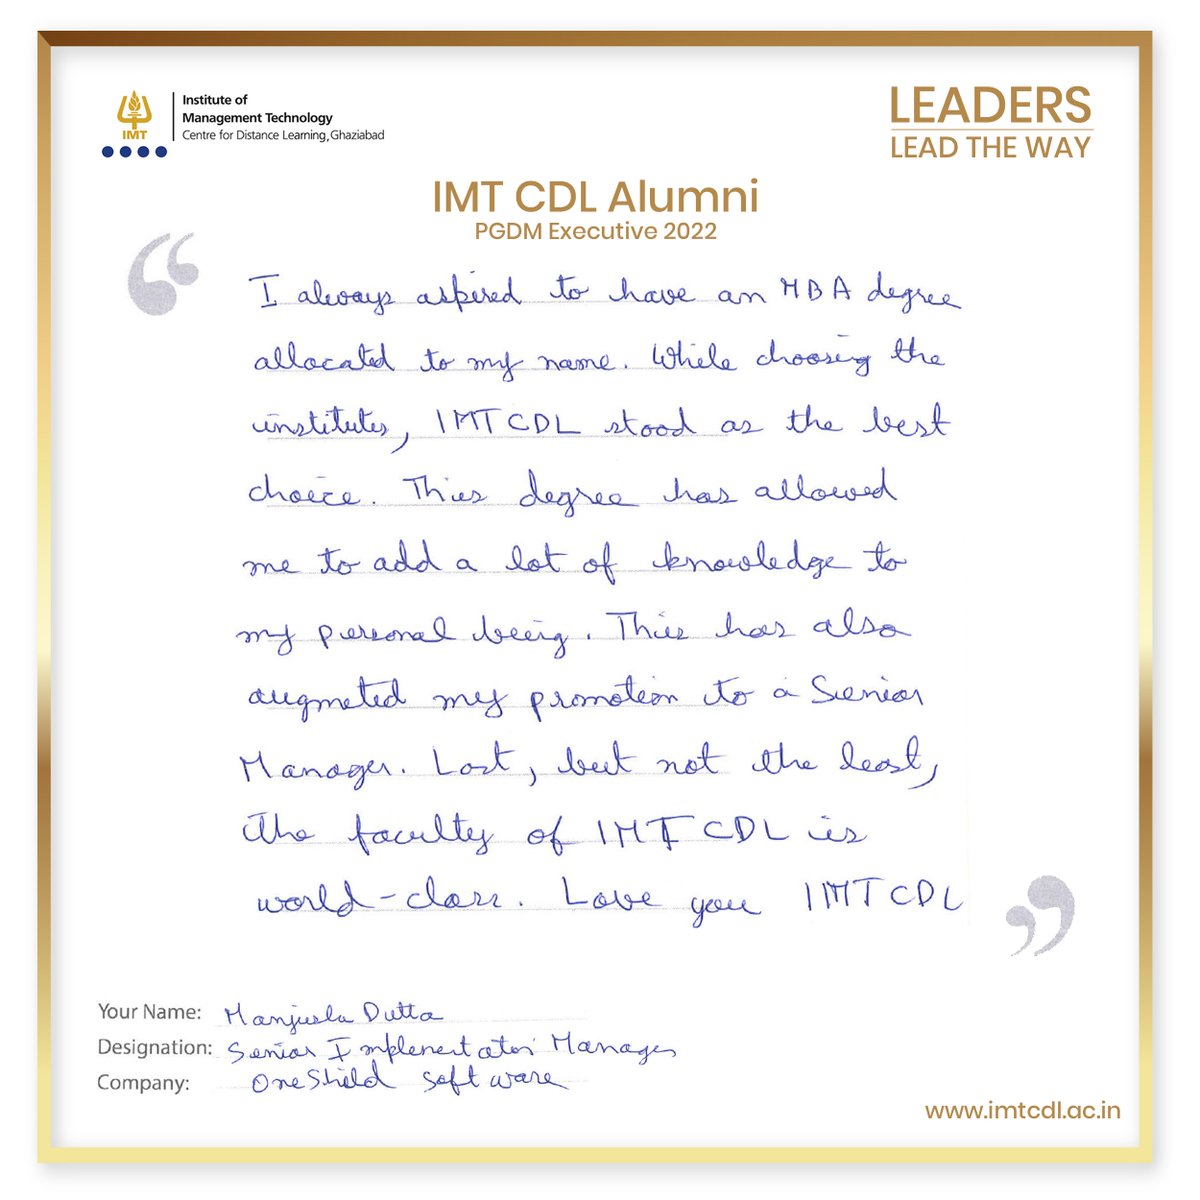 Institute of
Management Technology
Centre for Distance Learning, Ghaziabad
IMT
LEADERS
LEAD THE WAY
IMT CDL Alumni
PGDM Executive 2022
“
I always aspired to have an MBA degree
allocated to my name. While choosing the
institutes, IMT CDL stood as the best
choice. This degree has allowed
me to add a lot of knowledge to
my personal being. This has also
augmeted my promotion to a Senior
Manager. Last, but not the least,
The faculty of IMT CDL is
world-class. Love you IMT CDL
”
Your Name: Manjula Dutta
Designation: Senior Implementation Manager
Company: OneShield Software
www.imtcdl.ac.in